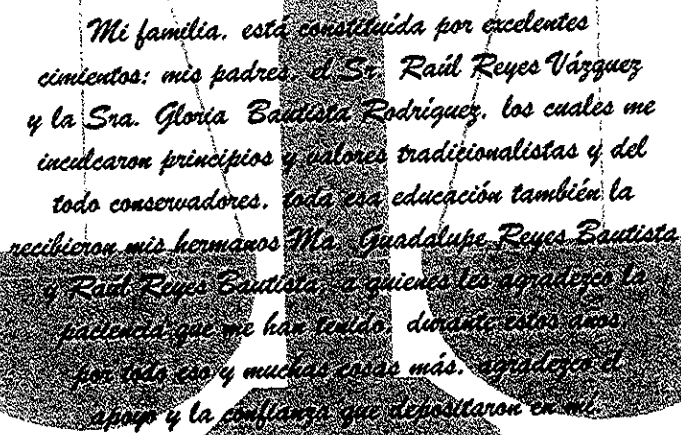 Mi familia, está constituída por excelentes
cimientos: mis padres, el Sr. Raúl Reyes Vázquez
y la Sra. Gloria Bautista Rodríguez, los cuales me
inculcaron principios y valores tradicionalistas y del
todo conservadores, toda esa educación también la
recibieron mis hermanos Ma. Guadalupe Reyes Bautista
y Raúl Reyes Bautista, a quienes les agradezco la
paciencia que me han tenido, durante estos años,
por todo eso y muchas cosas más, agradezco el
apoyo y la confianza que depositaron en mí